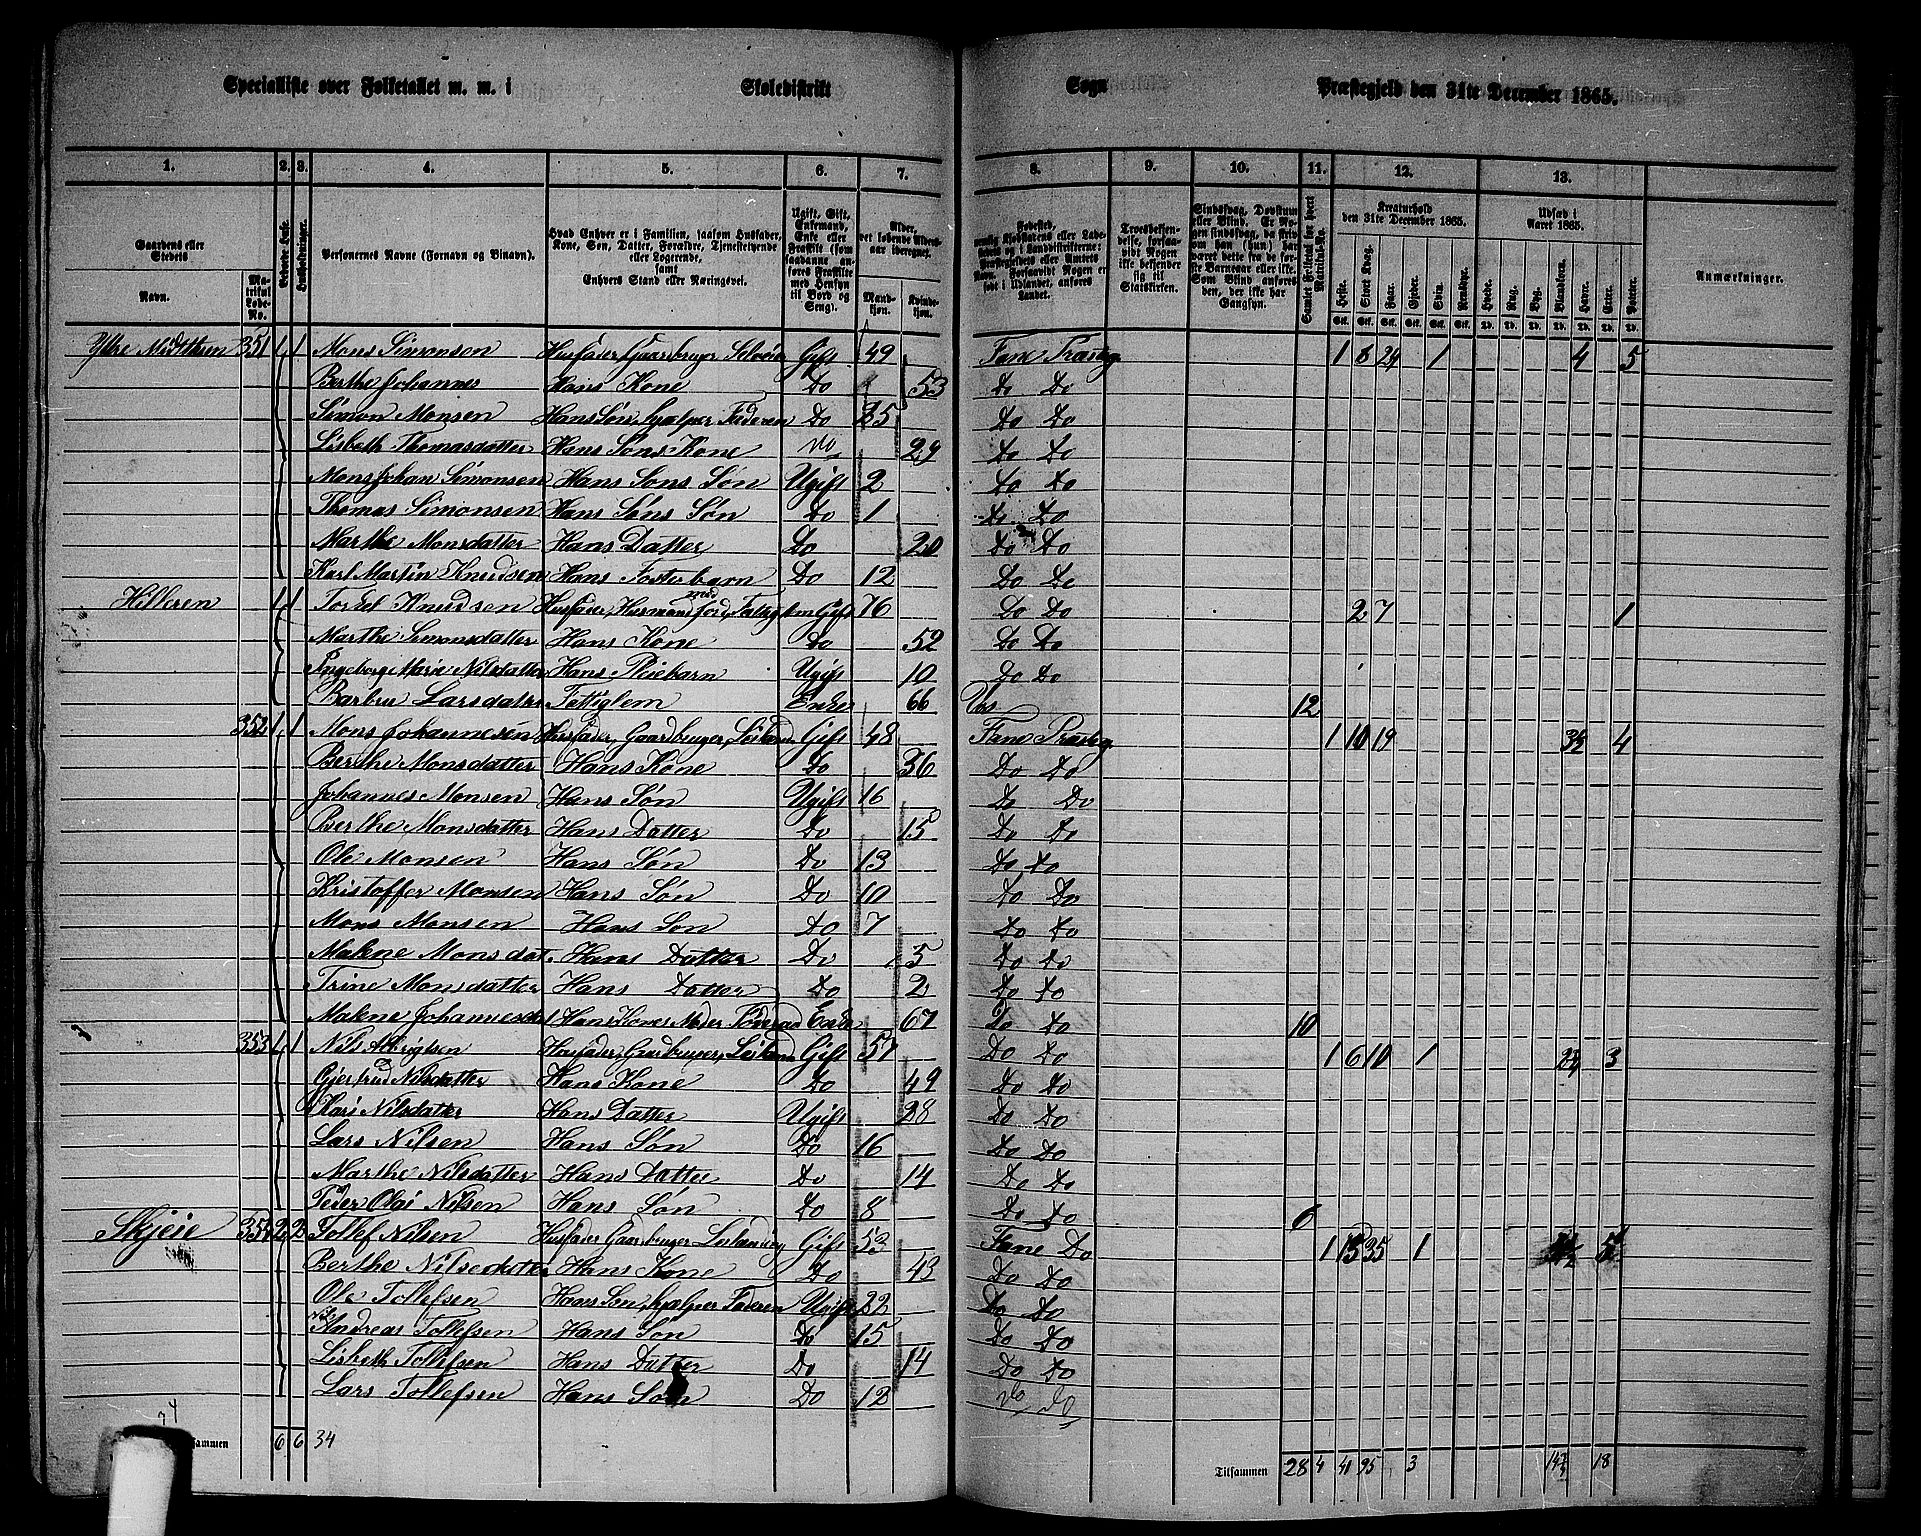 Specialliste over Folketallet m. m. i Skoledistrikt Sogn Præstegjeld den 31te December 1865.
1. 2. 3. 4. 5. 6. 7. 8. 9. 10. 11. 12. 13.
Gaardens eller Stedets
Navn.
Matrikul Løbe-No.
Beboede Huse.
Husholdninger.
Personernes Navne (Fornavn og Binavn).
Hvad Enhver er i Familien, saasom Husfader, Kone, Søn, Datter, Forældre, Tjenestetyende eller Logerende, samt Enhvers Stand eller Næringsvei.
Ugift, Gift, Enkemand, Enke eller Fraskilte (som saadanne anføres Fraskilte med Hensyn til Bord og Seng).
Alder, det løbende Aldersaar iberegnet.
Mandkjøn. Kvindekjøn.
Troesbekjendelse, forsaavidt Nogen ikke bekjender sig til Statskirken.
Sindssvag, Døvstum eller Blind. Er Nogen sindssvag, da skriv om han (hun) har været dette fra de første Barneaar eller ikke. Som Blind anføres den, der ikke har Gangsyn.
Samlet Folketal for hvert Matrikul-No.
Kreaturhold den 31te December 1865.
Heste. Stort Kvæg. Faar. Gjeder. Sviin. Rensdyr.
Udsæd i Aaret 1865.
Hvede. Rug. Byg. Blandkorn. Havre. Erter. Poteter.
Anmærkninger.
Ytre Midtthun 351 1 1 Mons Simonsen Husfader, Gaardbruger Selveier Gift 49 Fane Præsteg 1 8 24 1 4 5
Berthe Johannes Hans Kone Do 53 Do Do
Simon Monsen Hans Søn, hjælper Faderen Do 25 Do Do
Lisbeth Thomasdatter Hans Søns Kone Do 29 Do Do
Mons Johan Simonsen Hans Søns Søn Ugift 2 Do Do
Thomas Simonsen Hans Søns Søn Do 1 Do Do
Marthe Monsdatter Hans Datter Do 20 Do Do
Karl Martin Knudsen Hans Fosterbarn Do 12 Do Do
Hilleren 1 1 Torkel Knudsen Husfader, Husmand med Jord, Fattiglem Gift 76 Do Do 2 7 1
Marthe Simonsdatter Hans Kone Do 52 Do Do
Ingeborg Marie Nilsdatter Hans Pleiebarn Ugift 10 Do Do
Barbru Larsdatter Fattiglem Enke 66 Vos 12
352 1 1 Mons Johannesen Husfader, Gaardbruger, Leilænd Gift 48 Fane Præsteg 1 10 19 3½ 4
Berthe Monsdatter Hans Kone Do 36 Do Do
Johannes Monsen Hans Søn Ugift 16 Do Do
Berthe Monsdatter Hans Datter Do 15 Do Do
Ole Monsen Hans Søn Do 13 Do Do
Kristoffer Monsen Hans Søn Do 10 Do Do
Mons Monsen Hans Søn Do 7 Do Do
Malene Monsdat. Hans Datter Do 5 Do Do
Trine Monsdatter Hans Datter Do 2 Do Do
Malene Johannesdat Hans Kones Moder Føderaad Enke 67 Do Do 10
353 1 1 Nils Hans Husfader, Gaardbruger, Leilænd Gift 51 Do Do 1 6 10 1 2¾ 3
Gjertrud Nilsdatter Hans Kone Do 49 Do Do
Kari Nilsdatter Hans Datter Ugift 28 Do Do
Lars Nilsen Hans Søn Do 16 Do Do
Marthe Nilsdatter Hans Datter Do 14 Do Do
Peder Olai Nilsen Hans Søn Do 8 Do Do 6
Skjeie 354 2 2 Tollef Nilsen Husfader Gaardbruger Leilænding Gift 53 Fane Do 1 15 35 1 5
Berthe Nilsdatter Hans Kone Do 43 Do Do
Ole Tollefsen Hans Søn, hjælper Faderen Ugift 22 Do Do
Nils Andreas Tollefsen Hans Søn Do 15 Do Do
Lisbeth Tollefsen Hans Datter Do 14 Do Do
Lars Tollefsen Hans Søn Do 12 Do Do
6 6 34
Tilsammen 28 4 41 95 3 14¾ 18